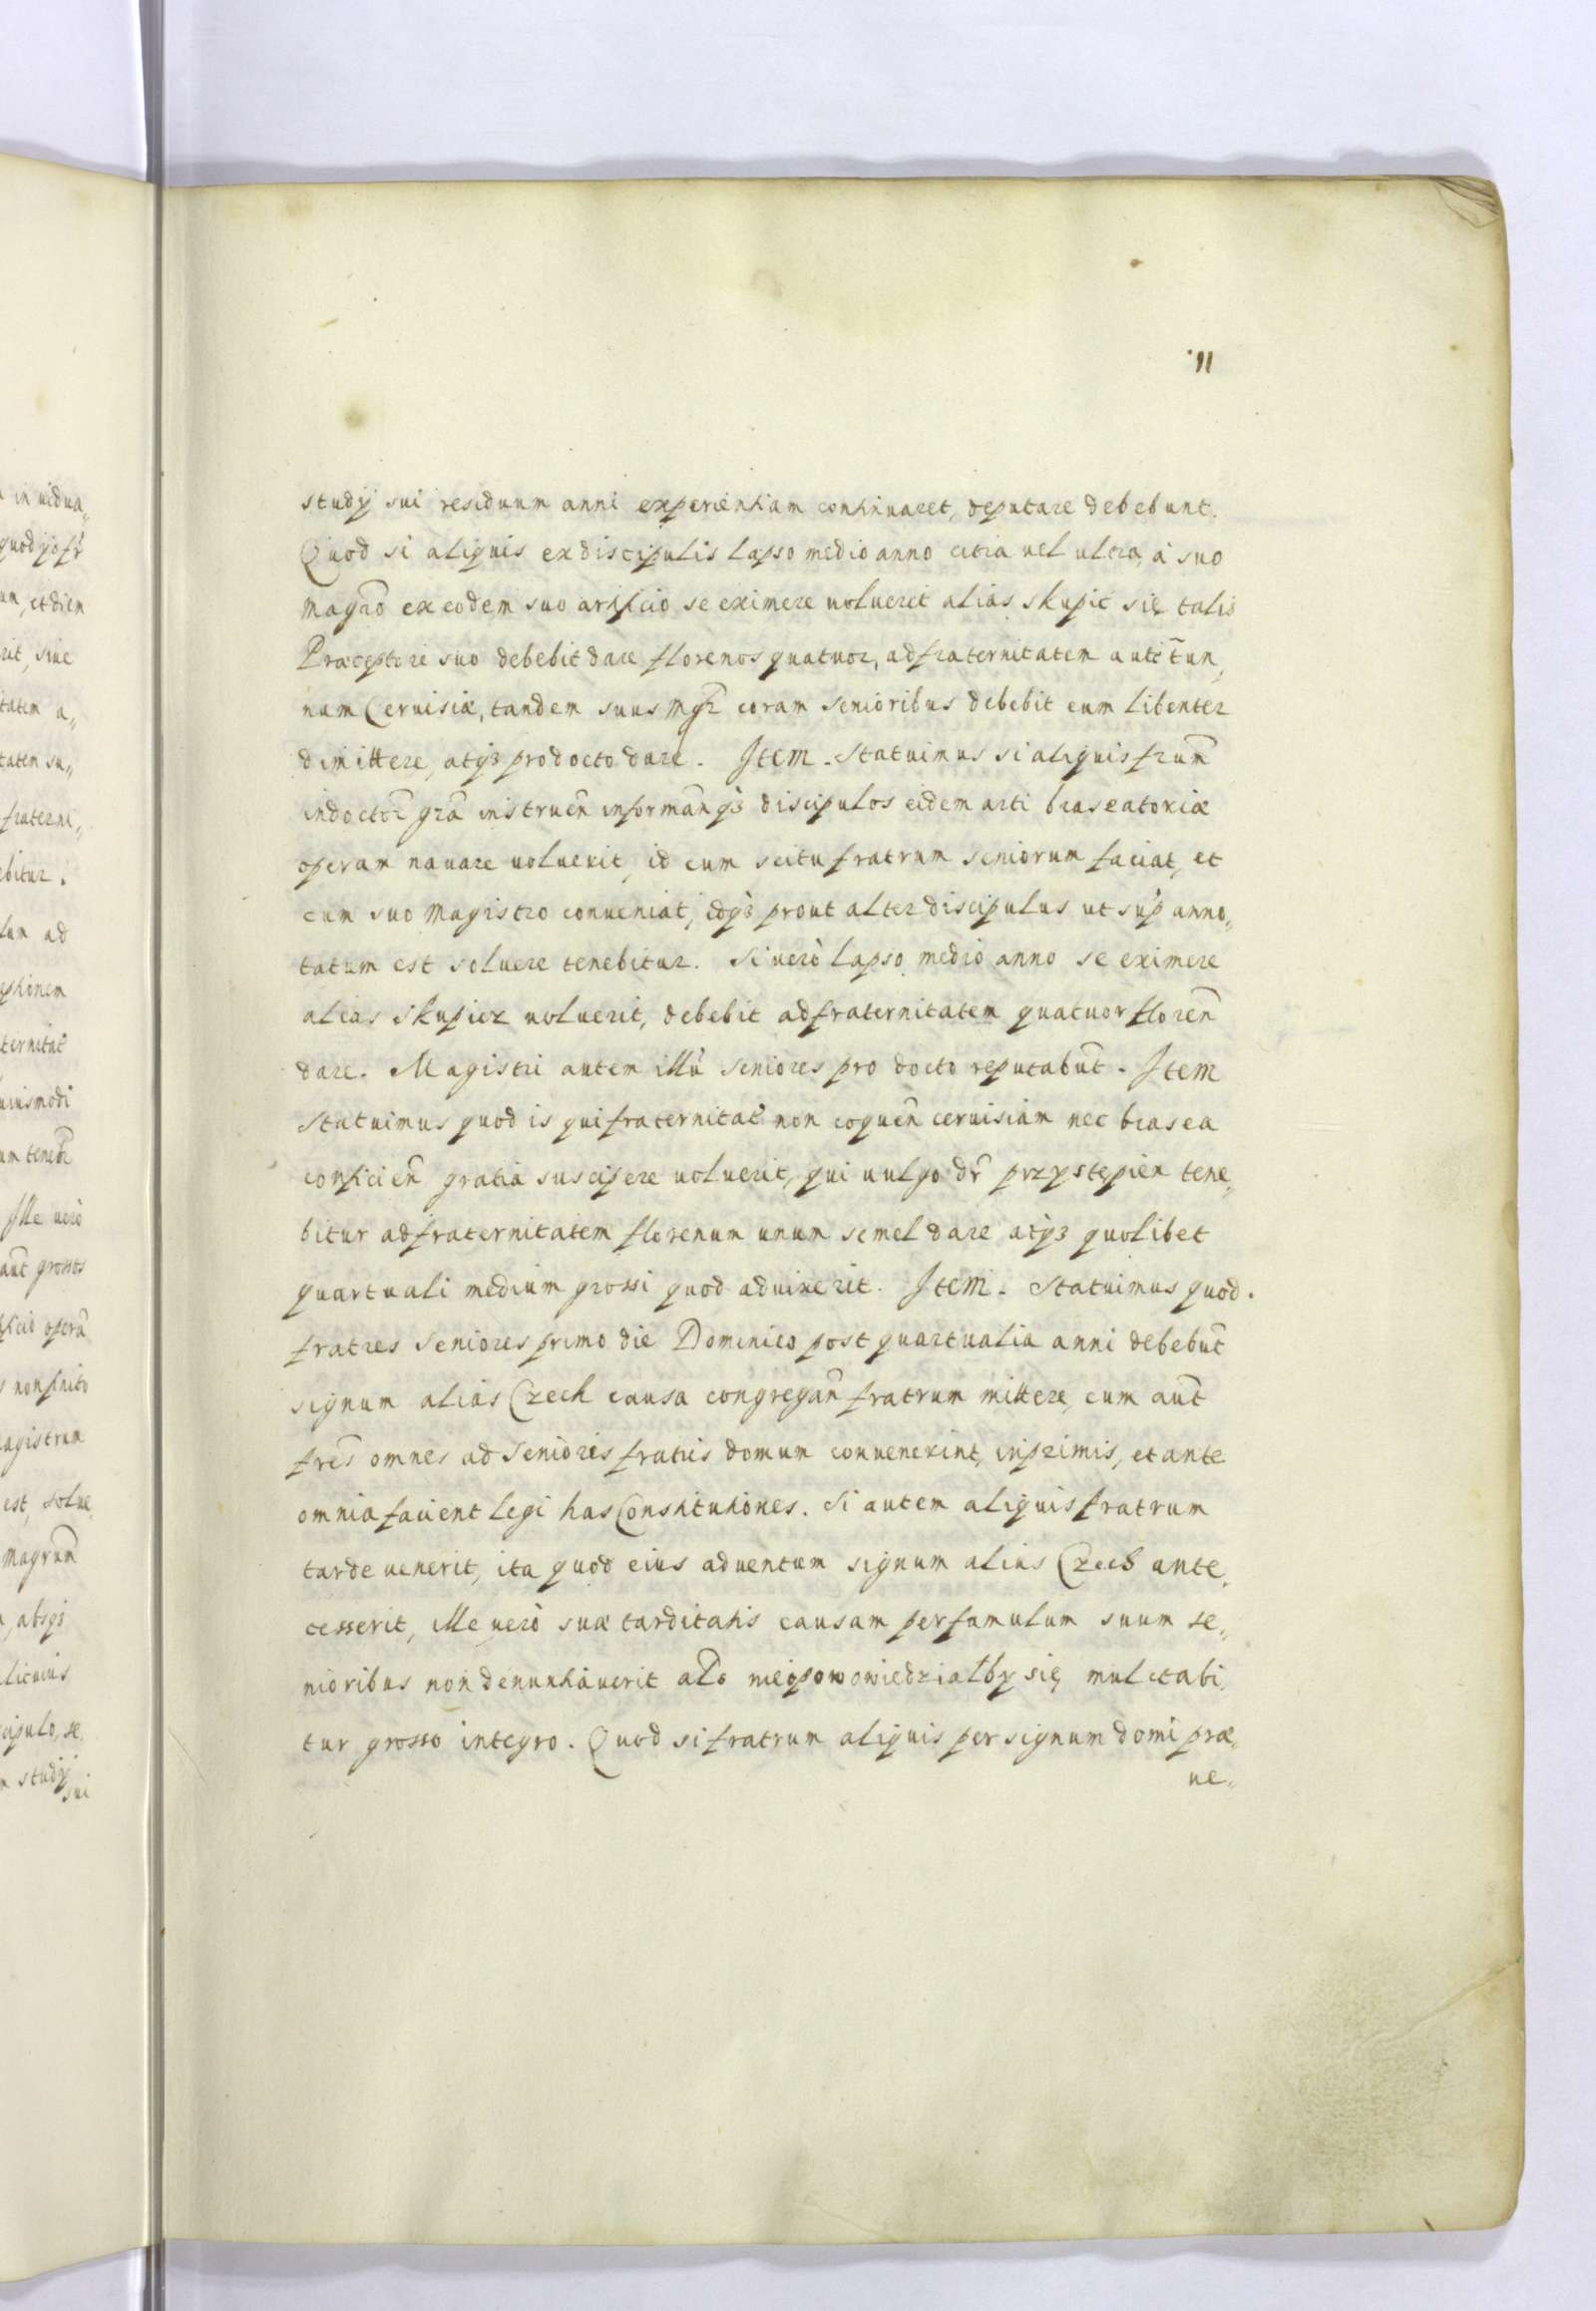 11
study sui residuum anni experientiam continuaret, deputare debebunt.
Quod si aliquis ex discipulis lapso medio anno citra uel ultra, à suo
magrõ ex eodem suo artificio se eximere uoluerit aliàs skupić się talis
Præceptori suo debebit dare florenos quatuor, ad fraternitatem autẽ tun„
nam Ceruisiæ, tandem suus mgr̃ coram senioribus debebit eum libenter
dimittere, atqз pro docto dare. Item. Statuimus si aliquis frũm
indoctor̃ grã instruen̄ informan̄qз discipulos eidem arti braseatoriæ
operam nauare uoluerit, id cum scitu fratrum seniorum faciat, et
cum suo Magistro conueniat, eoqз prout alter discipulus ut sup̃ anno„
tatum est soluere tenebitur. Si uerò lapso medio anno se eximere
alias skupicz uoluerit, debebit ad fraternitatem quatuor floren̄
dare. Magistri autem illũ seniores pro docto reputabunt̃. Item
Statuimus quod is qui fraternitat̃ non coquen̄ ceruisiam nec brasea
conficien̄ gratia suscipere uoluerit, qui uulgo dr̃ przystepien tene„
bitur ad fraternitatem florenum unum semel dare atqз quolibet
quartuali medium grossi quod aduixerit. Item. Statuimus quod.
fratres Seniores primo die Dominico post quartualia anni debebũt
signum aliàs Czech causa congregan̄ fratrum mittere, cum aũt
frẽs omnes ad Senioris fratris domum conuenerint, inprimis, et ante
omnia facient legi has Constitutiones. Si autem aliquis fratrum
tarde uenerit, ita quod eius aduentum signum alias Czech ante„
cesserit, ille uerò suæ tarditatis causam per famulum suum se„
nioribus non denuntiauerit alo nieopowowiedzialby się mulctabi„
tur grosso integro. Quod si fratrum aliquis per signum domi præ„
ue„